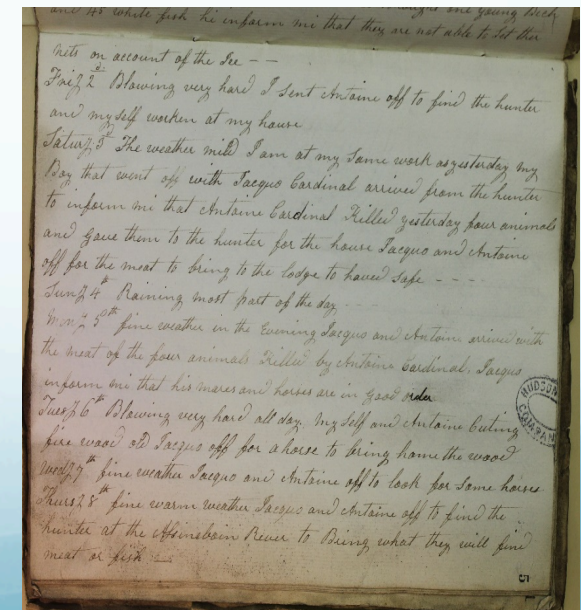 and 45 white fish he inform mi that they are not able to Set ther
nets on account of the Ice — —
Frid 2d Blowing very hard I Sent Antoine off to find the hunter
and my self worken at my house
Saturd 3d The weather mild I am at my Same work as yesterday my
Boy that went off with Jacquo Cardinal arrived from the hunter
to inform mi that Antoine Cardinal Killed yesterday four animals
and gave them to the hunter for the house Jacquo and Antoine
off for the meat to bring to the lodge to haved Safe - - - -
Sund 4th Raining most part of the day - - -
Mond 5th fine weather in the Evening Jacquo and Antoine arrived with
the meat of the four animals Killed by Antoine Cardinal. Jacquo
inform mi that his mares and horses are in good order
Tuesd 6th Blowing very hard all day. My Self and Antoine Cuting
fire wood old Jacquo off for a horse to bring hame the wood
Wedd 7th fine weather Jacquo and Antoine off to look for Some horses
Thursd 8th fine warm weather Jacquo and Antoine off to find the
hunter at the Assineboin River to Bring what they will find
meat or fish —
HUDSON
COMPAN
5